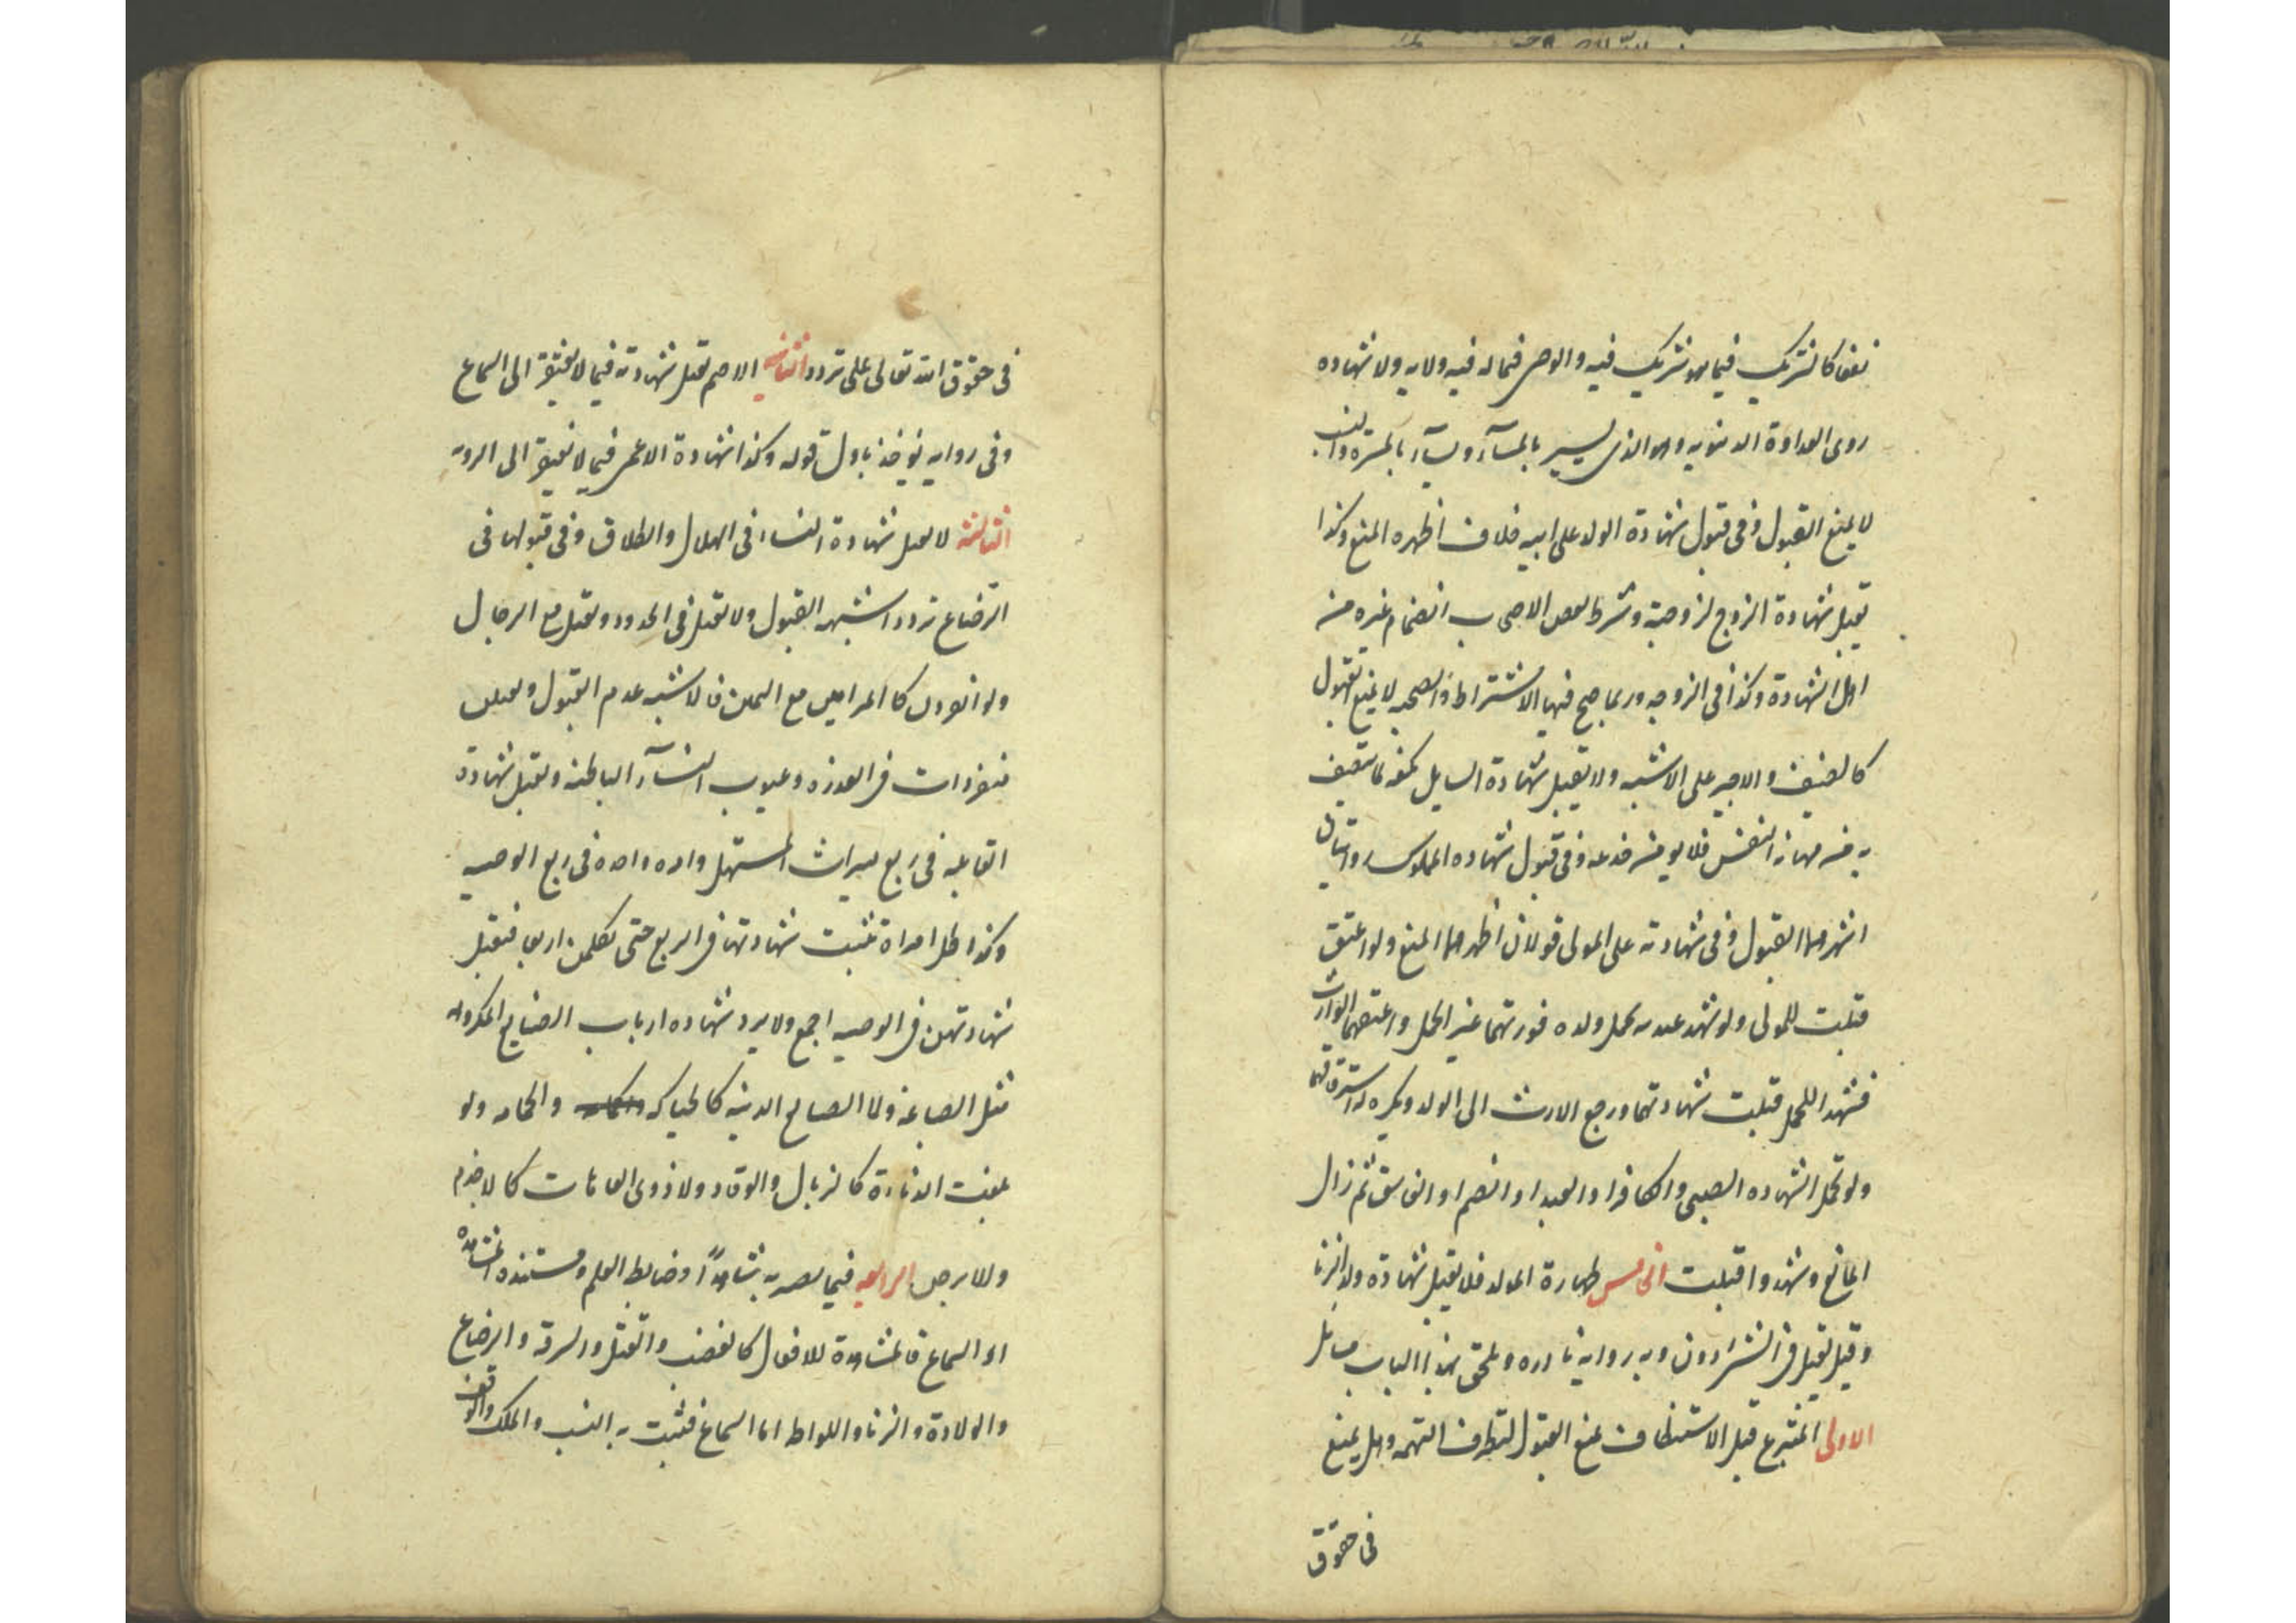 نفعا كالشريك فيما هو شريك فيه والوصى فيما له فيه ولايه ولا شهاده
ذوى العداوة الدنيويه وهو الذى يسير بالمسآءة ويسآء بالمسرة والنسب
لا يمنع القبول وفى قبول شهادة الولد على ابيه خلاف اظهره المنع وكذا
تقبل شهادة الزوج لزوجته وشرط بعض الاصحاب انضمام غيره من
اهل الشهادة وكذا فى الزوجه وربما صح فيها الاشتراط والصحبه لا يمنع القبول
كالضيف والاجير على الاشبه ولا يقبل شهادة السايل بكفه لما يتصف
به من مهانه النفس فلا يومن خدعه وفى قبول شهاده المملوك روايتان
اشهرهما القبول وفى شهادته على المولى قولان اظهرهما المنع ولو اعتق
قبلت للمولى ولو شهد عبديه بحمل ولده فورثهما غير الحمل واعتقهما الوارث
فشهدا للحمل قبلت شهادتهما ورجع الارث الى الولد ويكره له استرقاقهما
ولو تحمل الشهاده الصبى والكافر او العبد او الخصم او الفاسق ثم زال
المانع وشهدوا قبلت الخامس طهارة المولد فلا يقبل شهادة ولد الزنا
وقيل تقبل فى الشئ الدون وبه روايه نادره ويلحق بهذا الباب مسائل
الاولى المتبرع قبل الاستنطاق يمنع القبول لتطرف التهمه وهل يمنع
فى حقوق
فى حقوق الله تعالى على تردد الثانيه الاصم تقبل شهادته فيما لا يفتقر الى السماع
وفى روايه يوخذ باول قوله وكذا شهادة الاعمى فيما لا يفتقر الى الرويه
الثالثه لا تقبل شهادة النساء فى الهلال والطلاق وفى قبولها فى
الرضاع تردد اشبهه القبول ولا تقبل فى الحدود وتقبل مع الرجال
ولو انفردن كامراتين مع اليمين فالاشبه عدم القبول وتقبلن
منفردات فى العذره وعيوب النسآء الباطنه وتقبل شهادة
القابله فى ربع ميراث المستهل وامراه واحده فى ربع الوصيه
وكذا كل امراة تثبت شهادتها فى الربع حتى تكملن اربعا فتقبل
شهادتهن فى الوصيه اجمع ولا يرد شهاده ارباب الصنايع المكروهه
مثل الصياغه ولا الصنايع الدنيه كالحياكه والحجامه ولو
بلغت الدناءة كالزبال والوقاد ولا ذوى العاهات كالاجذم
والابرص الرابعه فيما يصير به شاهدًا وضابطه العلم ومستنده المشاهده
او السماع فالمشاهدة للافعال كالغصب والقتل والسرقه والرضاع
والولادة والزنا واللواط اما السماع فثبت به النسب والملك والوقف